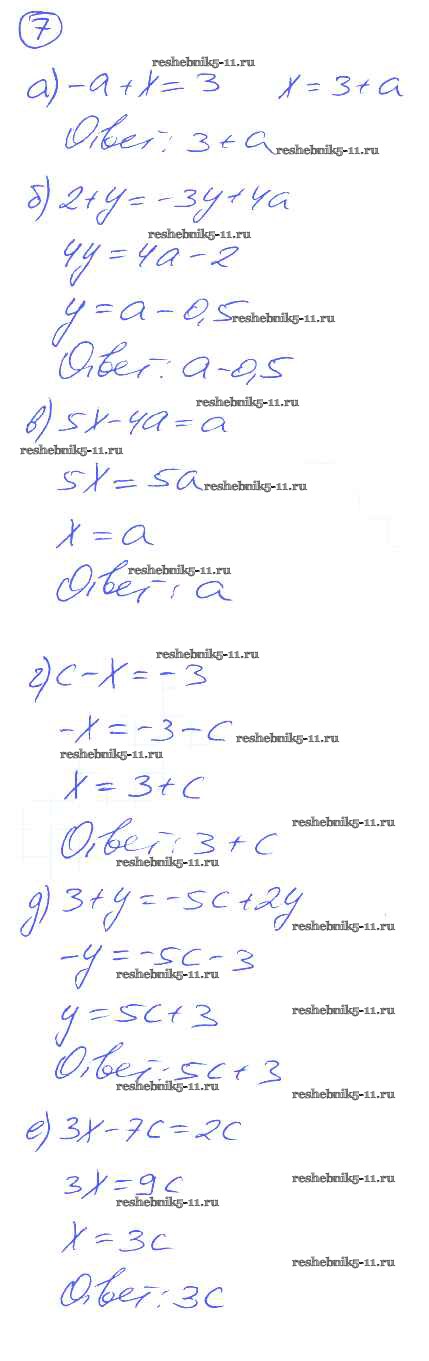 7
reshebnik5-11.ru
а) -a + x = 3 x = 3 + a
Ответ: 3 + a
reshebnik5-11.ru
б) 2 + y = -3y + 4a
reshebnik5-11.ru
4y = 4a - 2
y = a - 0,5
reshebnik5-11.ru
Ответ: a - 0,5
reshebnik5-11.ru
в) 5x - 4a = a
reshebnik5-11.ru
5x = 5a
reshebnik5-11.ru
x = a
reshebnik5-11.ru
Ответ: a
reshebnik5-11.ru
г) c - x = -3
-x = -3 - c
reshebnik5-11.ru
reshebnik5-11.ru
x = 3 + c
reshebnik5-11.ru
Ответ: 3 + c
reshebnik5-11.ru
д) 3 + y = -5c + 2y
reshebnik5-11.ru
-y = -5c - 3
reshebnik5-11.ru
y = 5c + 3
reshebnik5-11.ru
Ответ: 5c + 3
reshebnik5-11.ru
reshebnik5-11.ru
е) 3x - 7c = 2c
3x = 9c
reshebnik5-11.ru
reshebnik5-11.ru
x = 3c
reshebnik5-11.ru
Ответ: 3c